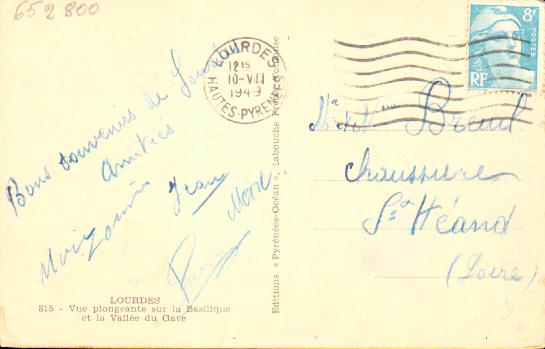 652800
Bons souvenirs de Lourdes
Amitiés
Jean
LOURDES
815 - Vue plongeante sur la Basilique
et la Vallée du Gave
Editions « Pyrénées-Océan », Labouche Frères, Toulouse
LOURDES
12 15
10-VII
1949
HAUTES-PYRENEES
8F
POSTES
RF
Mr et Mme Breuil
Chaussure
St Héand
(Loire)